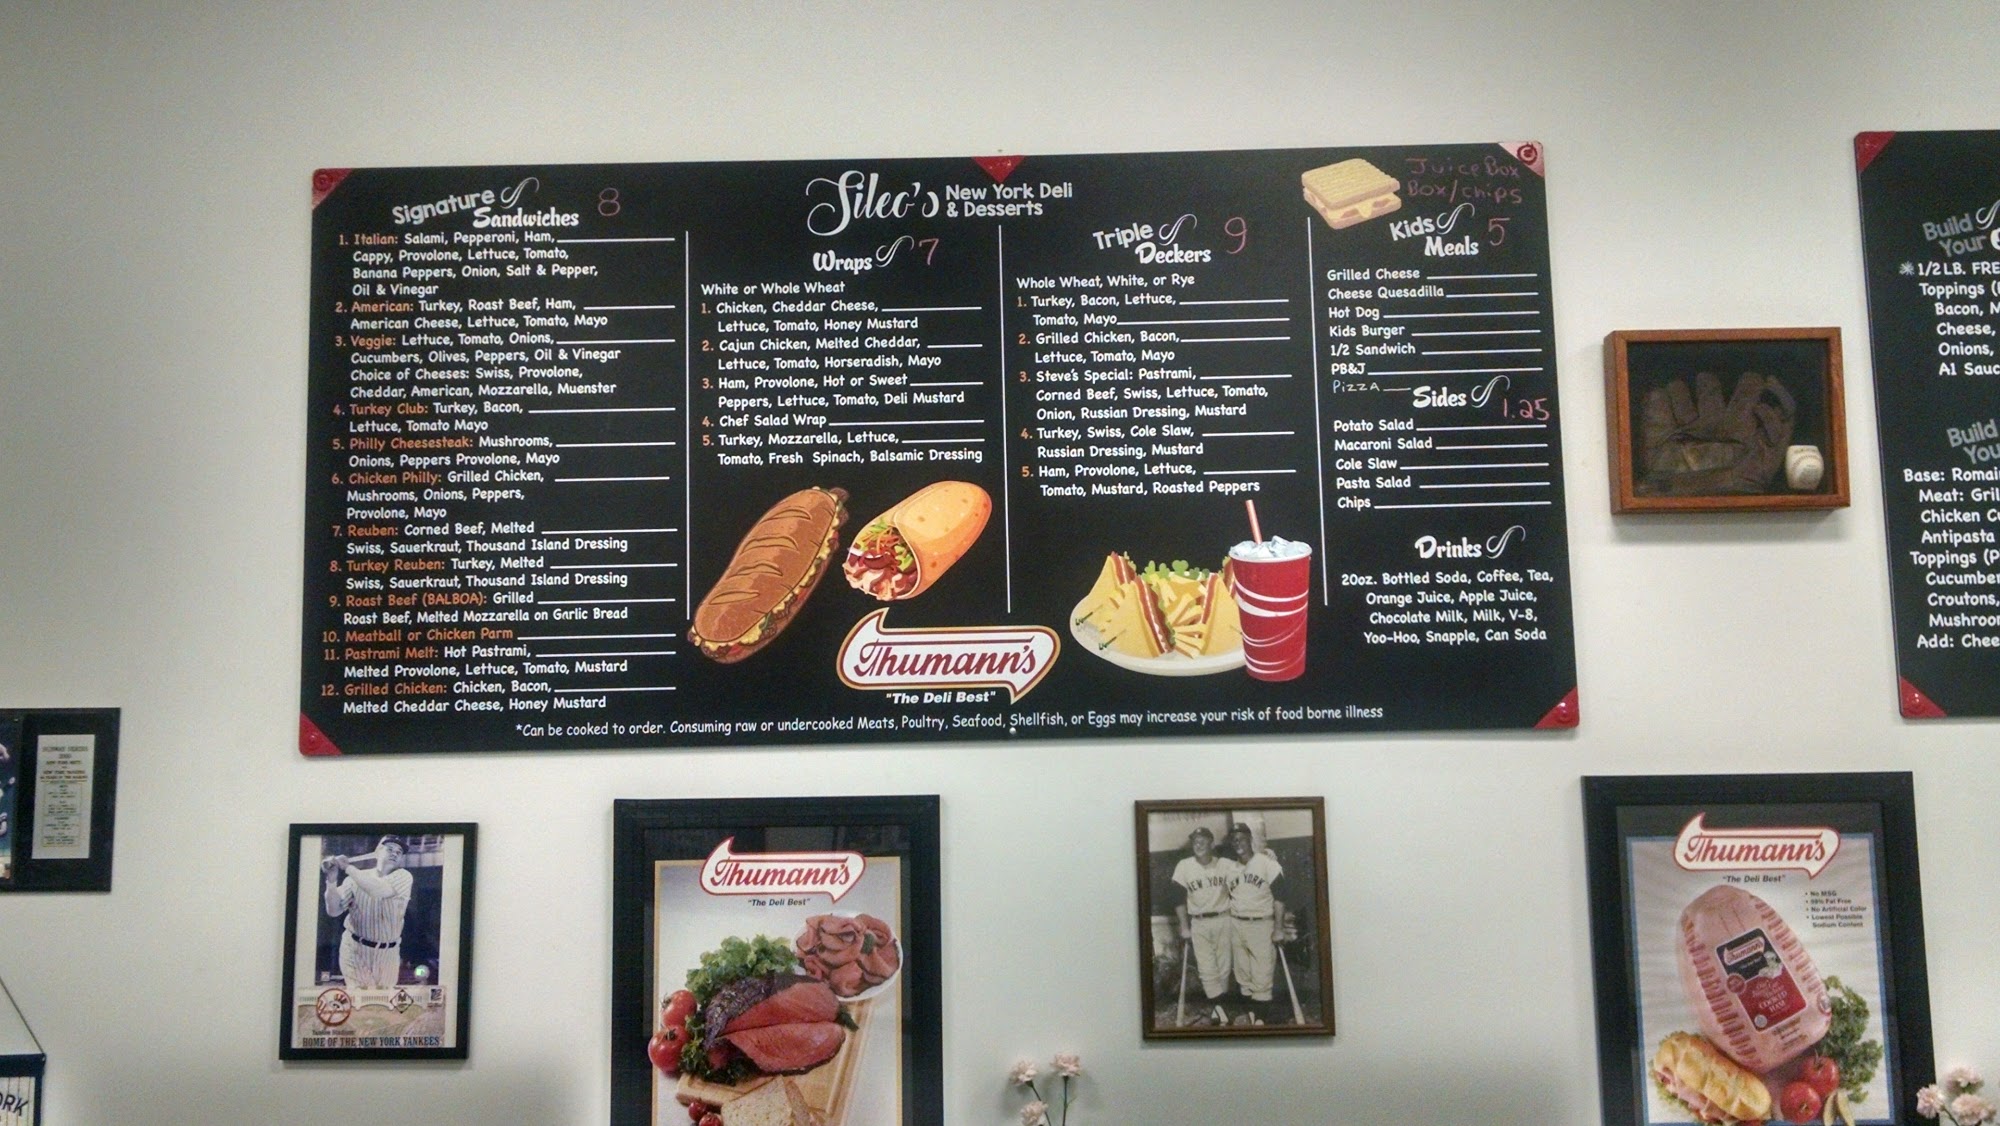 Signature
Sandwiches 8
1. Italian: Salami, Pepperoni, Ham,
Cappy, Provolone, Lettuce, Tomato,
Banana Peppers, Onion, Salt & Pepper,
Oil & Vinegar
2. American: Turkey, Roast Beef, Ham,
American Cheese, Lettuce, Tomato, Mayo
3. Veggie: Lettuce, Tomato, Onions,
Cucumbers, Olives, Peppers, Oil & Vinegar
Choice of Cheeses: Swiss, Provolone,
Cheddar, American, Mozzarella, Muenster
4. Turkey Club: Turkey, Bacon,
Lettuce, Tomato Mayo
5. Philly Cheesesteak: Mushrooms,
Onions, Peppers Provolone, Mayo
6. Chicken Philly: Grilled Chicken,
Mushrooms, Onions, Peppers,
Provolone, Mayo
7. Reuben: Corned Beef, Melted
Swiss, Sauerkraut, Thousand Island Dressing
8. Turkey Reuben: Turkey, Melted
Swiss, Sauerkraut, Thousand Island Dressing
9. Roast Beef (BALBOA): Grilled
Roast Beef, Melted Mozzarella on Garlic Bread
10. Meatball or Chicken Parm
11. Pastrami Melt: Hot Pastrami,
Melted Provolone, Lettuce, Tomato, Mustard
12. Grilled Chicken: Chicken, Bacon,
Melted Cheddar Cheese, Honey Mustard
Sileo's New York Deli
& Desserts
Wraps 7
White or Whole Wheat
1. Chicken, Cheddar Cheese,
Lettuce, Tomato, Honey Mustard
2. Cajun Chicken, Melted Cheddar,
Lettuce, Tomato, Horseradish, Mayo
3. Ham, Provolone, Hot or Sweet
Peppers, Lettuce, Tomato, Deli Mustard
4. Chef Salad Wrap
5. Turkey, Mozzarella, Lettuce,
Tomato, Fresh Spinach, Balsamic Dressing
Thumann's
"The Deli Best"
Triple
Deckers 9
Whole Wheat, White, or Rye
1. Turkey, Bacon, Lettuce,
Tomato, Mayo
2. Grilled Chicken, Bacon,
Lettuce, Tomato, Mayo
3. Steve's Special: Pastrami,
Corned Beef, Swiss, Lettuce, Tomato,
Onion, Russian Dressing, Mustard
4. Turkey, Swiss, Cole Slaw,
Russian Dressing, Mustard
5. Ham, Provolone, Lettuce,
Tomato, Mustard, Roasted Peppers
Juice Box
Box/chips
Kids
Meals 5
Grilled Cheese
Cheese Quesadilla
Hot Dog
Kids Burger
1/2 Sandwich
PB&J
Pizza
Sides 1.25
Potato Salad
Macaroni Salad
Cole Slaw
Pasta Salad
Chips
Drinks
20oz. Bottled Soda, Coffee, Tea,
Orange Juice, Apple Juice,
Chocolate Milk, Milk, V-8,
Yoo-Hoo, Snapple, Can Soda
*Can be cooked to order. Consuming raw or undercooked Meats, Poultry, Seafood, Shellfish, or Eggs may increase your risk of food borne illness
Build
Your
1/2 LB. FRE
Toppings (
Bacon, M
Cheese,
Onions,
A1 Sauc
Build
You
Base: Romai
Meat: Gril
Chicken Cu
Antipasta
Toppings (P
Cucumber
Croutons,
Mushroom
Add: Chee
Yankee Stadium
HOME OF THE NEW YORK YANKEES
Thumann's
"The Deli Best"
NEW YORK
NEW YORK
Thumann's
"The Deli Best"
• No MSG
• 98% Fat Free
• No Artificial Color
• Lowest Possible
Sodium Content
Thumann's
COOKED
HAM
ORK